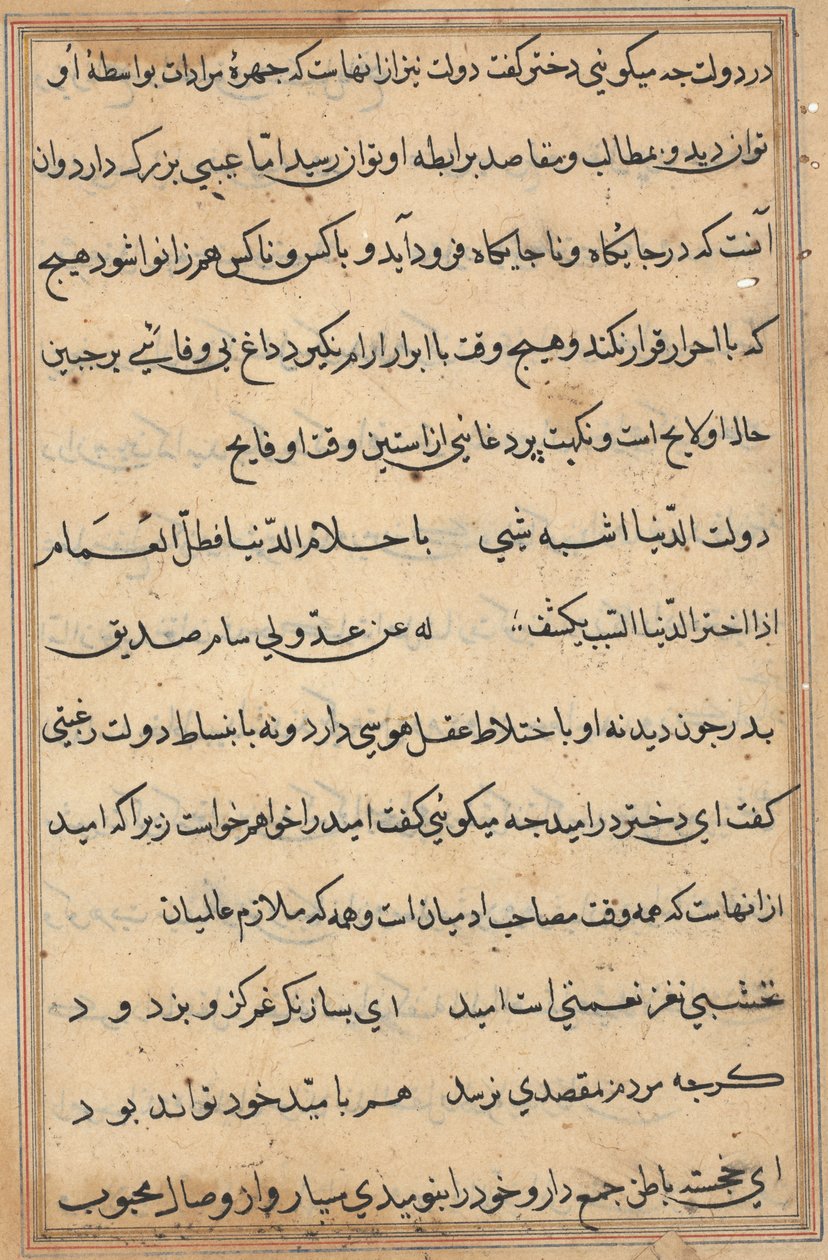 در دولت جه میکوئی دختر کفت دولت نیز ازانهاست که جهرهٔ مرادات بواسطهٔ او
توان دید و بمطالب و مقاصد برابطه او توان رسید امّا عیبی بزرک دارد وان
آنست که در جایکاه و ناجایکاه فرود آید و باکس و ناکس هم زانوا شود هیج
که با احرار قرار نکند و هیج وقت با ابرار ارام نکیرد داغ بی وفائیی بر جبین
حال او لایح است و نکهت پرد غانی از استین وقت او فایح
دولت الدّنیا اشبه شیی باحلام الدّنیا فطلّ العَمَام
اذا اختر الدّنیا التبب یکشف له عن عدّو لي سام صدیق
بدر جون دید نه او باختلاط عقل هوسی دارد و نه بابنساط دولت رغبتی
کفت ای دختر در امید جه میکوئی کفت امید را خواهم خواست زیرا که امید
ازانهاست که همه وقت مصاحب ادمیان است و همه که ملازم عالمیان
نخشبی نغز نعمتی است امید ای بسا زنک غم کز و بزد و د
کرجه مردم بمقصدی نرسد هم بامیّد خود تواند بود
ای خجسته باطن جمع دار و خود را بنومیدی مسپار و از وصال محبوب